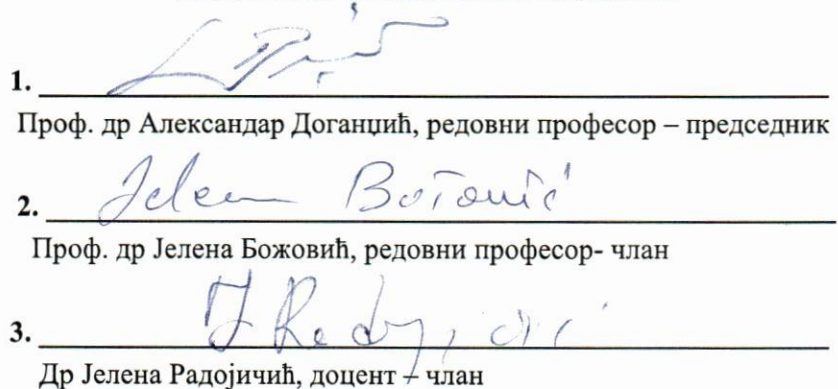 1.
Проф. др Александар Доганџић, редовни професор – председник
2. Jelena Božović
Проф. др Јелена Божовић, редовни професор- члан
3. J Radojičić
Др Јелена Радојичић, доцент – члан